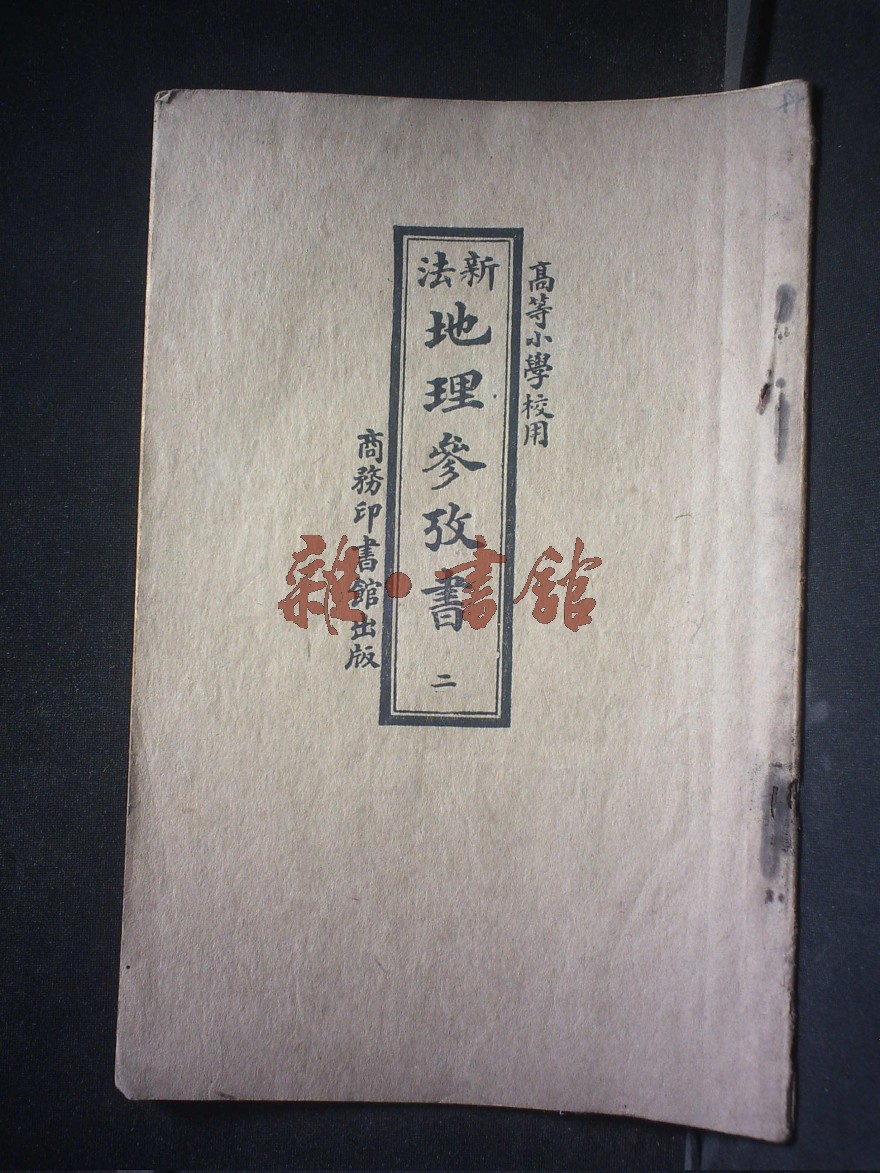 高等小學校用
新法
地理參攷書
二
商務印書館出版
雜·書館